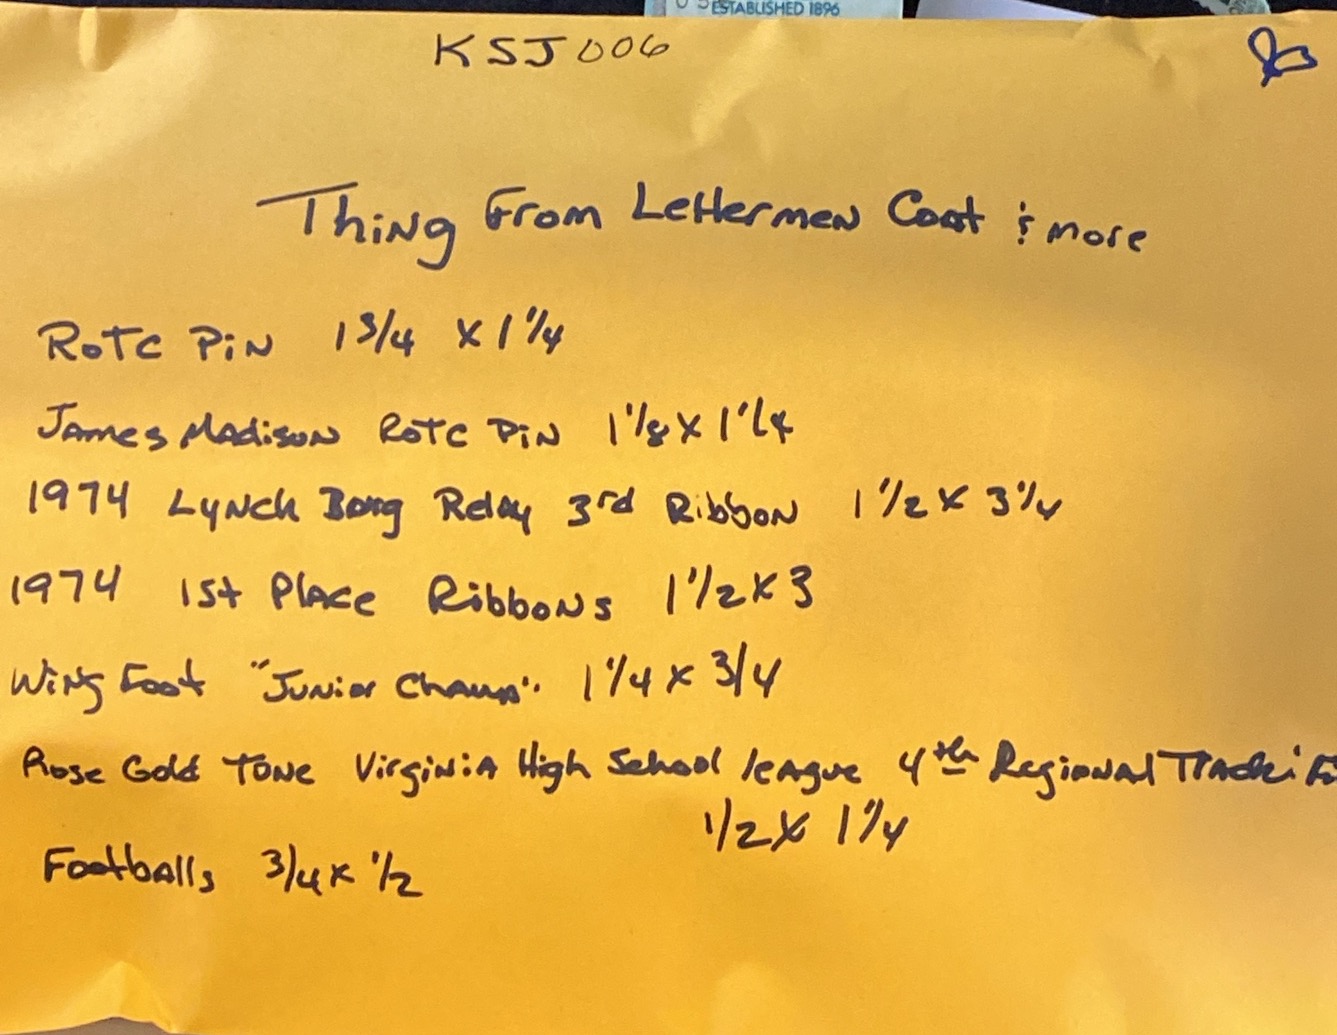 ESTABLISHED 1896
KSJ006
Thing From Lettermen Coat & more
ROTC PiN 1 3/4 x 1 1/4
James Madison ROTC PiN 1 1/8 x 1 1/4
1974 Lynch Borg Relay 3rd Ribbon 1 1/2 x 3 1/4
1974 1st Place Ribbons 1 1/2 x 3
Wing Foot "Junior Champ". 1 1/4 x 3/4
Rose Gold Tone Virginia High School league 4th Regional Track &
1/2 x 1 1/4
Footballs 3/4 x 1/2